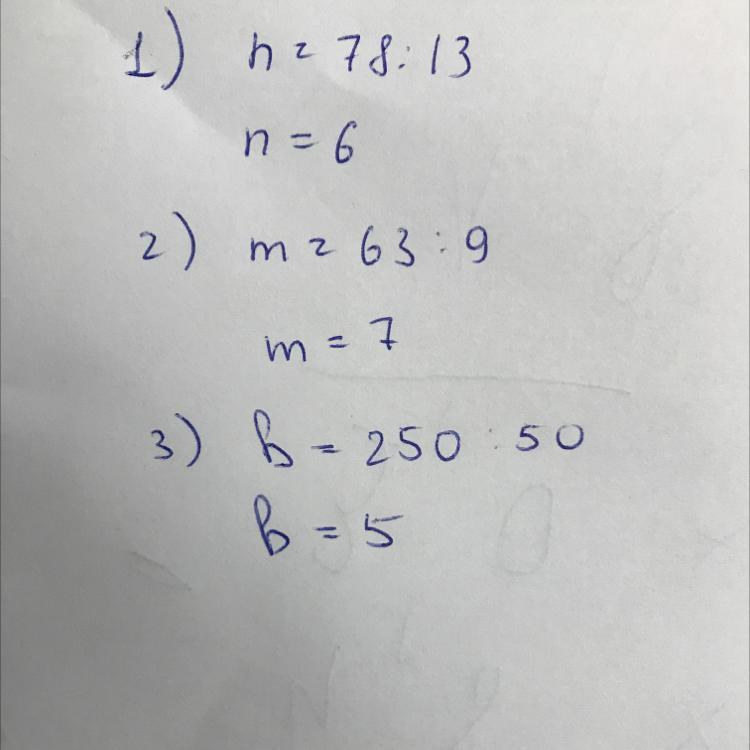 1) n = 78 : 13
n = 6
2) m = 63 : 9
m = 7
3) b = 250 : 50
b = 5